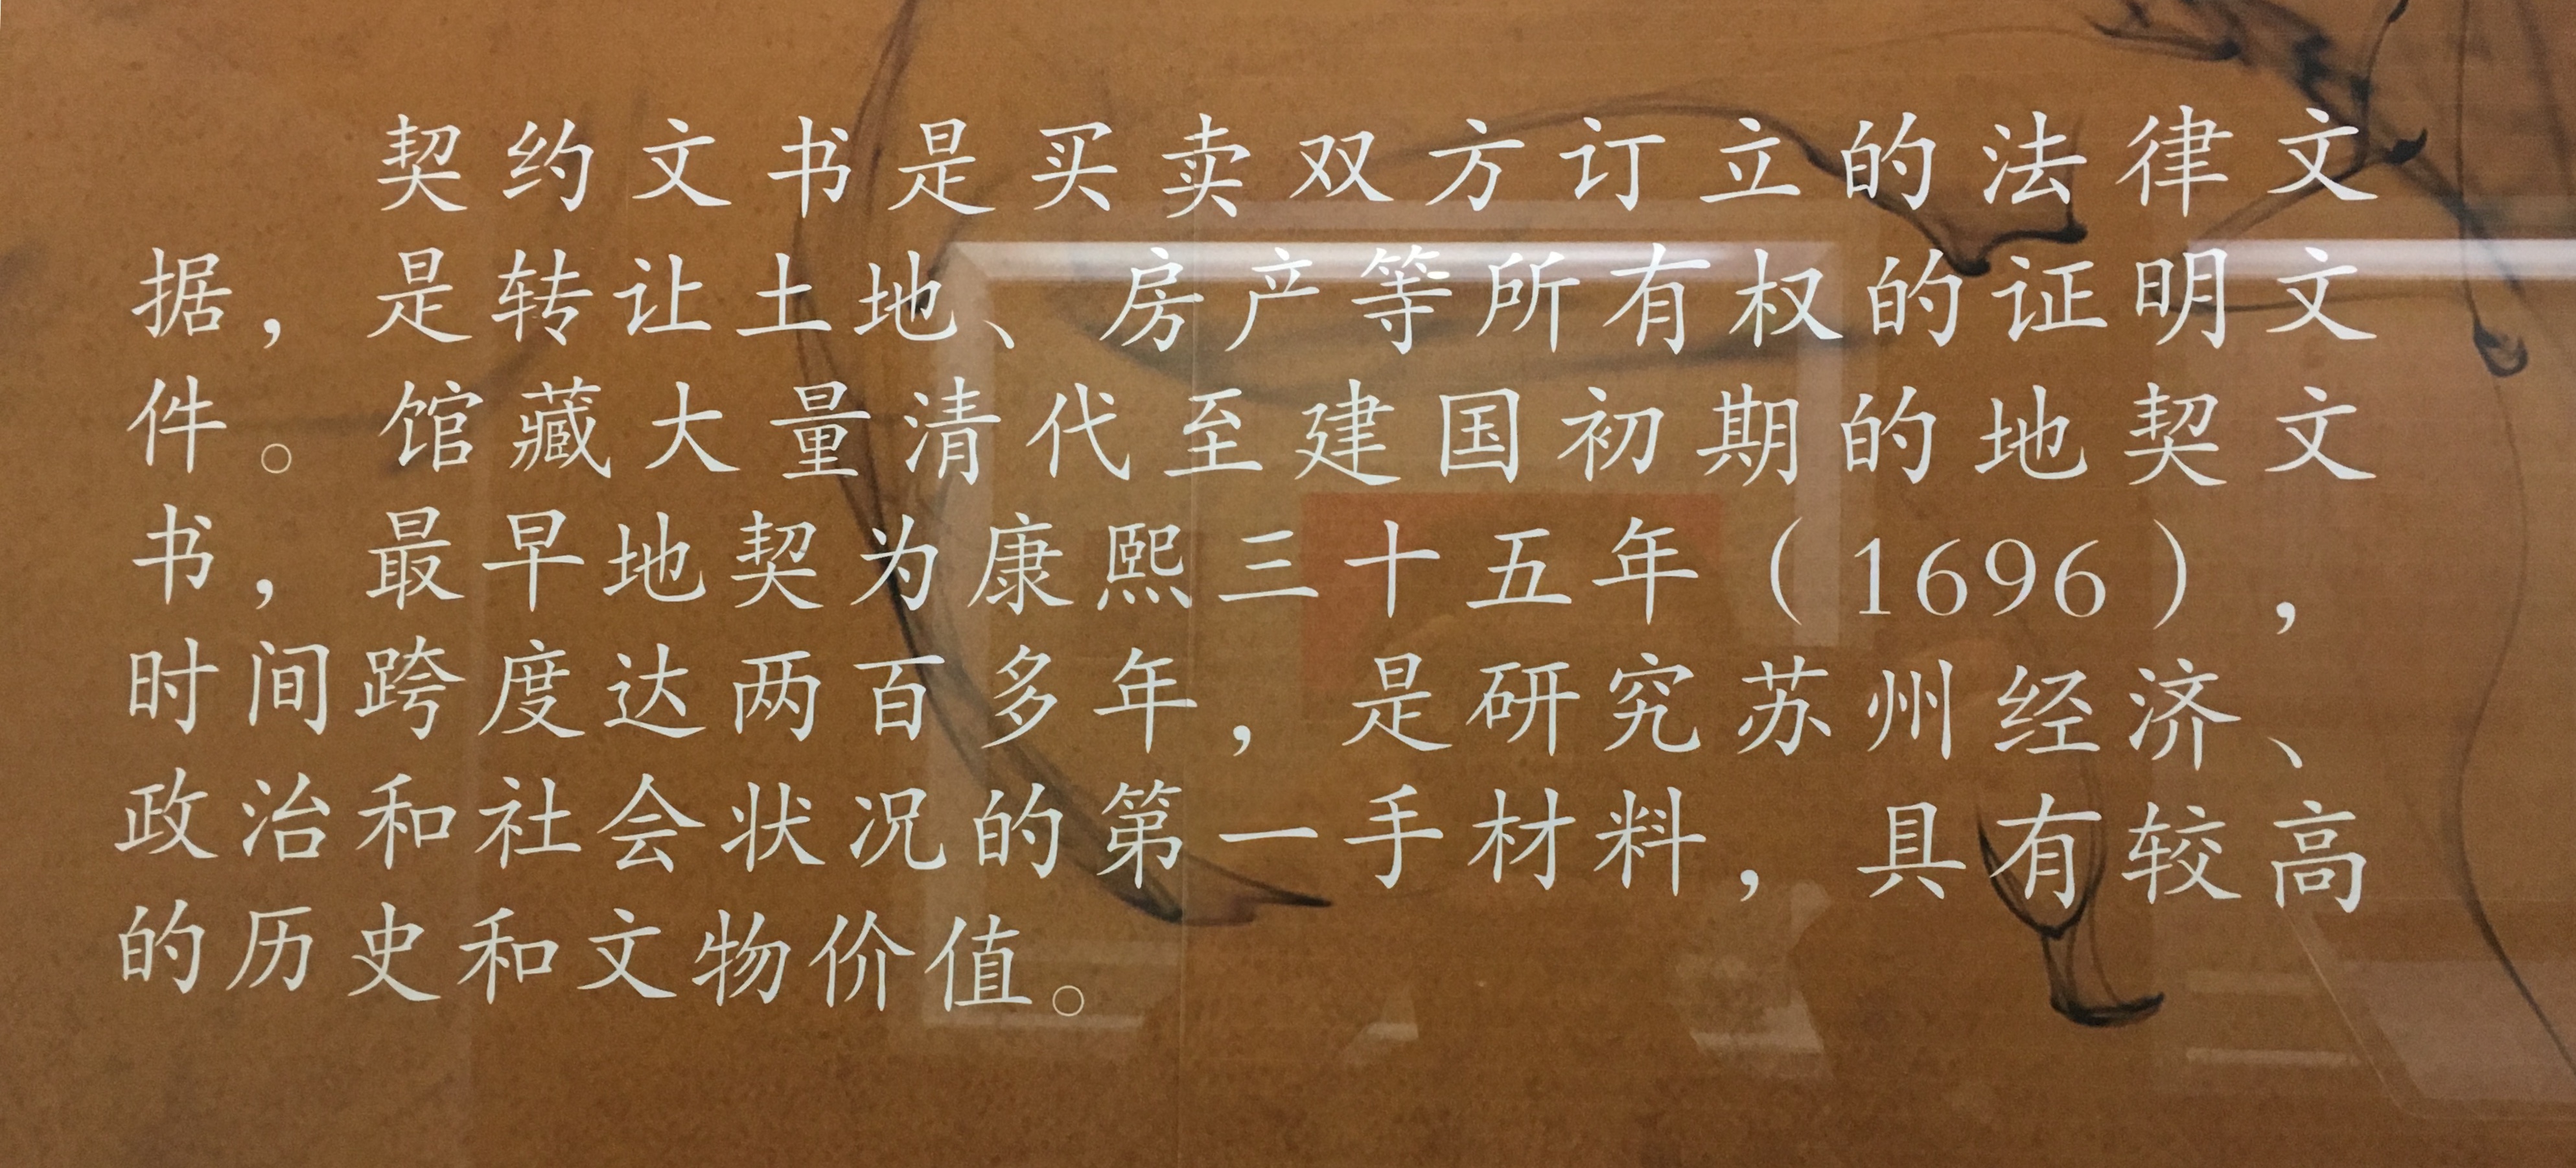 契约文书是买卖双方订立的法律文
据，是转让土地、房产等所有权的证明文
件。馆藏大量清代至建国初期的地契文
书，最早地契为康熙三十五年（1696），
时间跨度达两百多年，是研究苏州经济、
政治和社会状况的第一手材料，具有较高
的历史和文物价值。